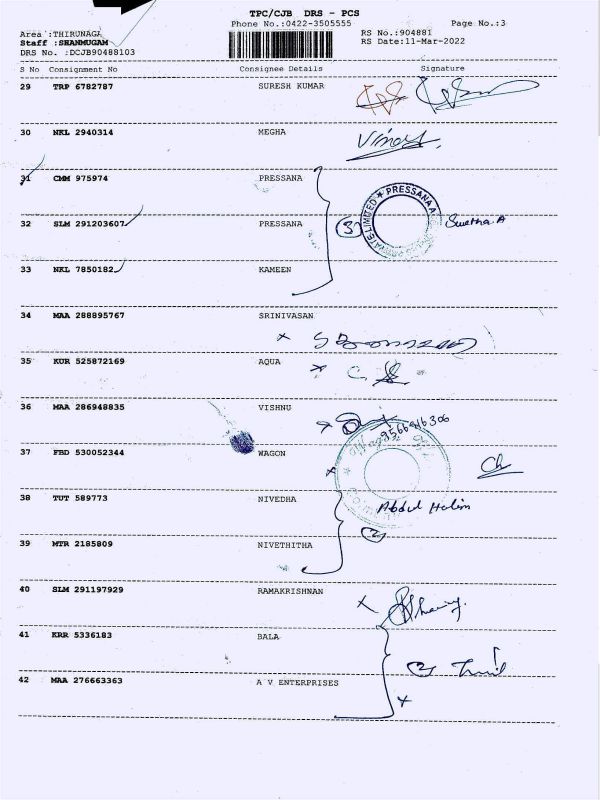 TPC/CJB DRS - PCS
Phone No.:0422-3505555
Page No.:3
Area :THIRUNAGA
RS No.:904881
Staff :SHANMUGAM
RS Date:11-Mar-2022
DRS No. :DCJB90488103
S No Consignment No Consignee Details Signature
29 TRP 6782787 SURESH KUMAR
30 NKL 2940314 MEGHA
31 CMM 975974 PRESSANA
PRESSANA
PRIVATE LIMITED
32 SLM 291203607 PRESSANA
3 Swetha A
33 NKL 7850182 KAMEEN
34 MAA 288895767 SRINIVASAN
35 KUR 525872169 AQUA
36 MAA 286948835 VISHNU
37 FBD 530052344 WAGON
38 TUT 589773 NIVEDHA
Abdul Halim
2
39 MTR 2185809 NIVETHITHA
40 SLM 291197929 RAMAKRISHNAN
41 KRR 5336183 BALA
2
42 MAA 276663363 A V ENTERPRISES